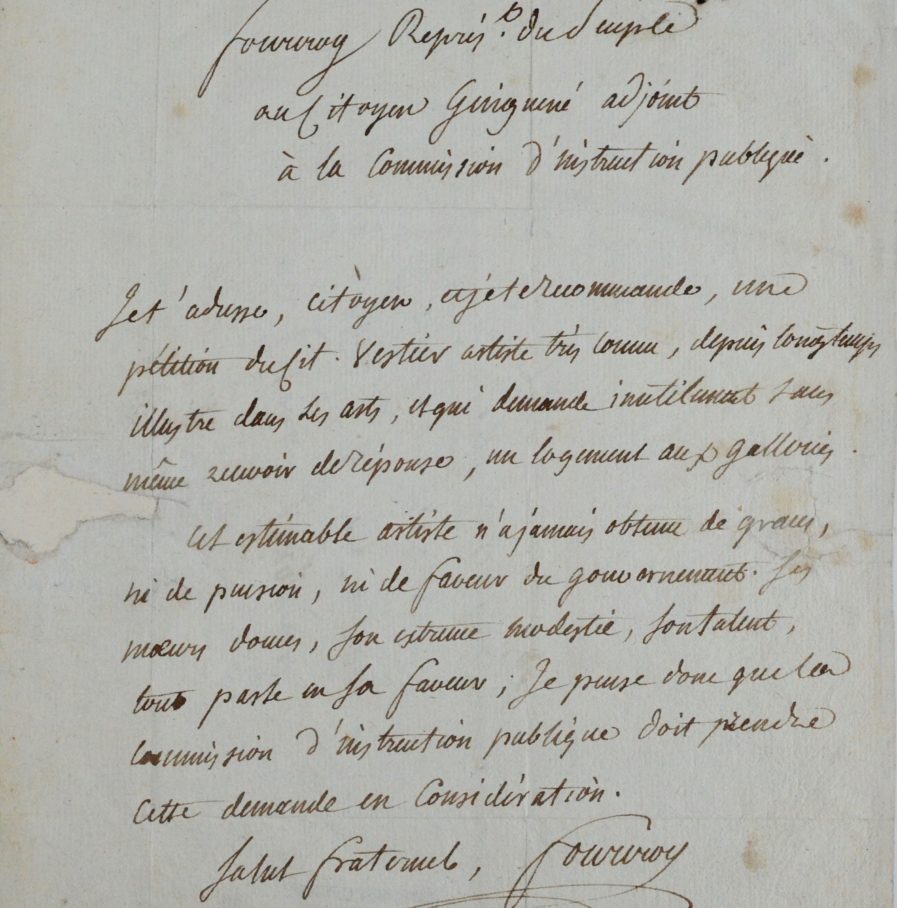 fourcroy Représ.t du peuple
au Citoyen Ginguené adjoint
à la Commission d'instruction publique.
Je t'adresse, citoyen, et je te recommande, une
pétition du Cit. Vestier artiste très connu, depuis longtemps
illustre dans les arts, et qui demande inutilement sans
même recevoir de réponse, un logement aux galleries.
Cet estimable artiste n'a jamais obtenu de graces,
ni de pension, ni de faveur du gouvernement. Ses
mœurs douces, son extreme modestie, son talent,
tout parle en sa faveur ; Je pense donc que la
Commission d'instruction publique doit prendre
Cette demande en Considération.
Salut fraternel, fourcroy